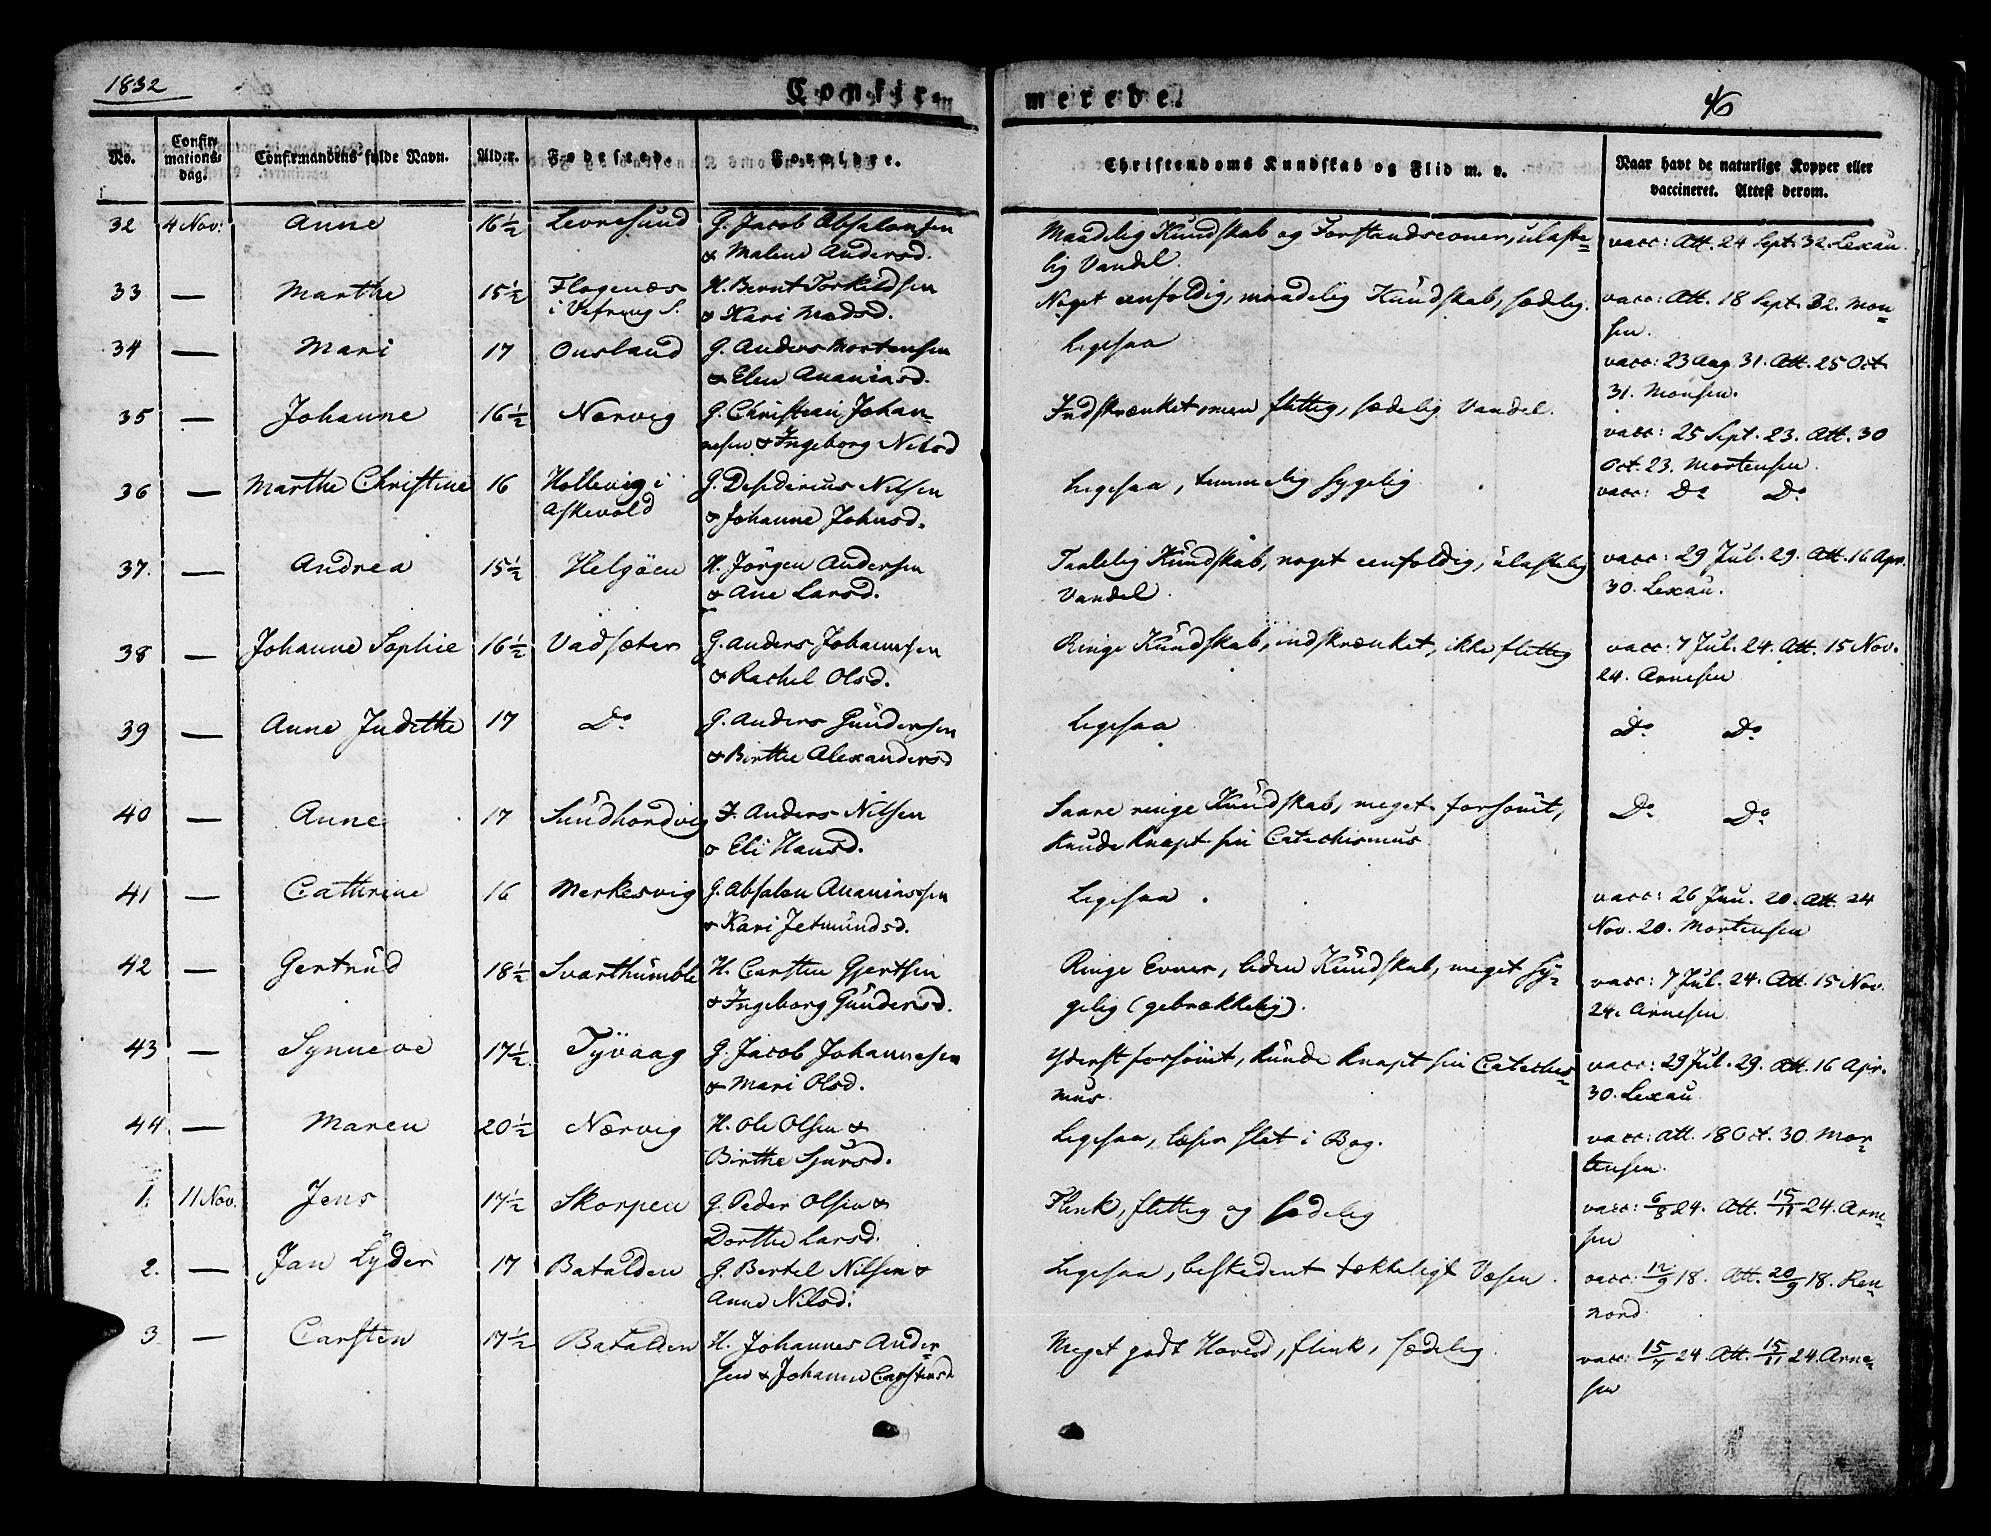 1832
Confirmerede.
46
No.
Confirmationsdag.
Confirmandens fulde Navn.
Alder.
Fødested.
Forældre.
Christendoms Kundskab og Flid m. v.
Naar havt de naturlige Kopper eller vaccineret. Attest derom.
32 4 Nov: Anne 16½ Levresund G. Jacob Absalonsen Maadelig Kundskab og Forstandsevner, ulaste= vacc: Att. 24 Sept. 32 Lexau.
& Malene Andersd. lig Vandel.
33 — Marthe 15½ Flogenæs H. Bernt Torkildsen Noget eenfoldig, maadelig Kundskab, sædelig. vacc: Att. 18 Sept. 32. Mon=
i Vefring S. & Kari Madsd. sen.
34 — Mari 17 Ousland G. Anders Mortensen Ligesaa vacc: 23 Aug. 31. Att. 25 Oct
& Elen Ananiasd. 31. Monsen.
35 — Johanne 16½ Nærvig G. Christian Johan= Indskrænket, men flittig, sædelig Vandel. vacc: 25 Sept. 23. Att. 30
nesen & Ingeborg Nilsd Oct. 23. Mortensen.
36 — Marthe Christine 16 Hollevig i G. Desiderius Nilsen Ligesaa, temmelig sygelig vacc: Do Do
Askevold & Johanne Johnsd.
37. — Andrea 15½ Helgöen H. Jörgen Andersen Taalelig Kundskab, noget eenfoldig, ulastelig vacc: 29 Jul. 29. Att. 16 Apr.
& Ane Larsd. Vandel. 30. Lexau.
38 — Johanne Sophie 16½ Vadsæter G. Anders Johannesen Ringe Kundskab, indskrænket, ikke flittig vacc: 7 Jul. 24. Att. 15 Nov.
& Rachel Olsd. 24. Arnesen
39 — Anne Judithe 17 Do G. Anders Gundersen Ligesaa Do Do
& Birthe Alexandersd
40 — Anne 17 Sundhordvig I. Anders Nilsen Saare ringe Kundskab, meget forsömt, Do Do
& Eli Hansd. kunde knapt sin Catechismus
41 — Cathrine 16 Merkesvig G. Absalon Ananiassen Ligesaa. vacc: 26 Jun. 20. Att. 24
& Kari Jetmundsd. Nov. 20. Mortensen
42 — Gertrud 18½ Svarthumble H. Carsten Gjertsen Ringe Evner, liden Kundskab, meget sy= vacc: 7 Jul. 24. Att. 15 Nov.
& Ingeborg Gundersd. gelig (gebrækkelig). 24. Arnesen
43 — Synneve 17½ Tyvaag G. Jacob Johannesen Yderst forsömt, kunde knapt sin Catechis= vacc: 29 Jul. 29. Att. 16 Apr.
& Mari Olsd. mus 30. Lexau
44 — Maren 20½ Nærvig H. Ole Olsen & Ligesaa, læser slet i Bog. vacc: Att. 18 Oct. 30 Mor=
Birthe Sjursd. tensen.
1. 11 Nov. Jens 17½ Skorpen G. Peder Olsen & Flink, flittig og sædelig vacc: 6/8 24. Att. 15/11 24. Arne=
Dorthe Larsd. sen
2. — Jan Lyder 17 Batalden G. Bertel Nilsen & Ligesaa, beskedent tækkeligt Væsen. vacc: 12/9 18. Att. 20/9 18. Ren=
Anne Nilsd. nord
3 — Carsten 17½ Batalden H. Johannes Ander= Meget godt Hoved, flink, sædelig. vacc: 15/7 24. Att. 15/11 24. Arne=
sen & Johanne Carstensd sen